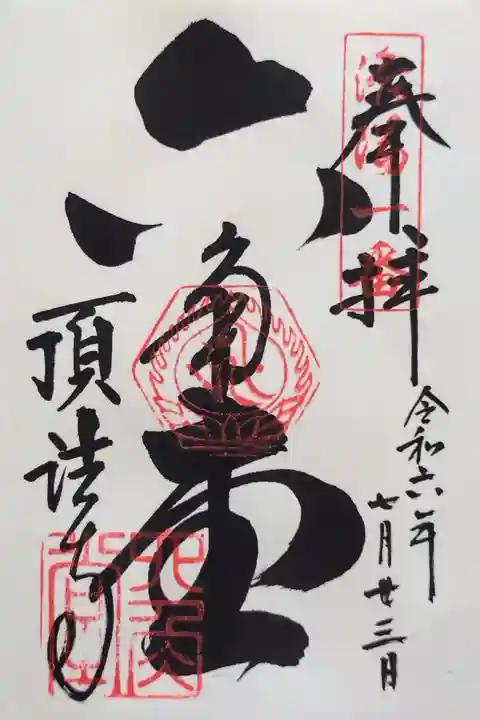 奉拝
洛陽一番
令和六年
七月廿三日
六角堂
頂法寺
六角
堂印